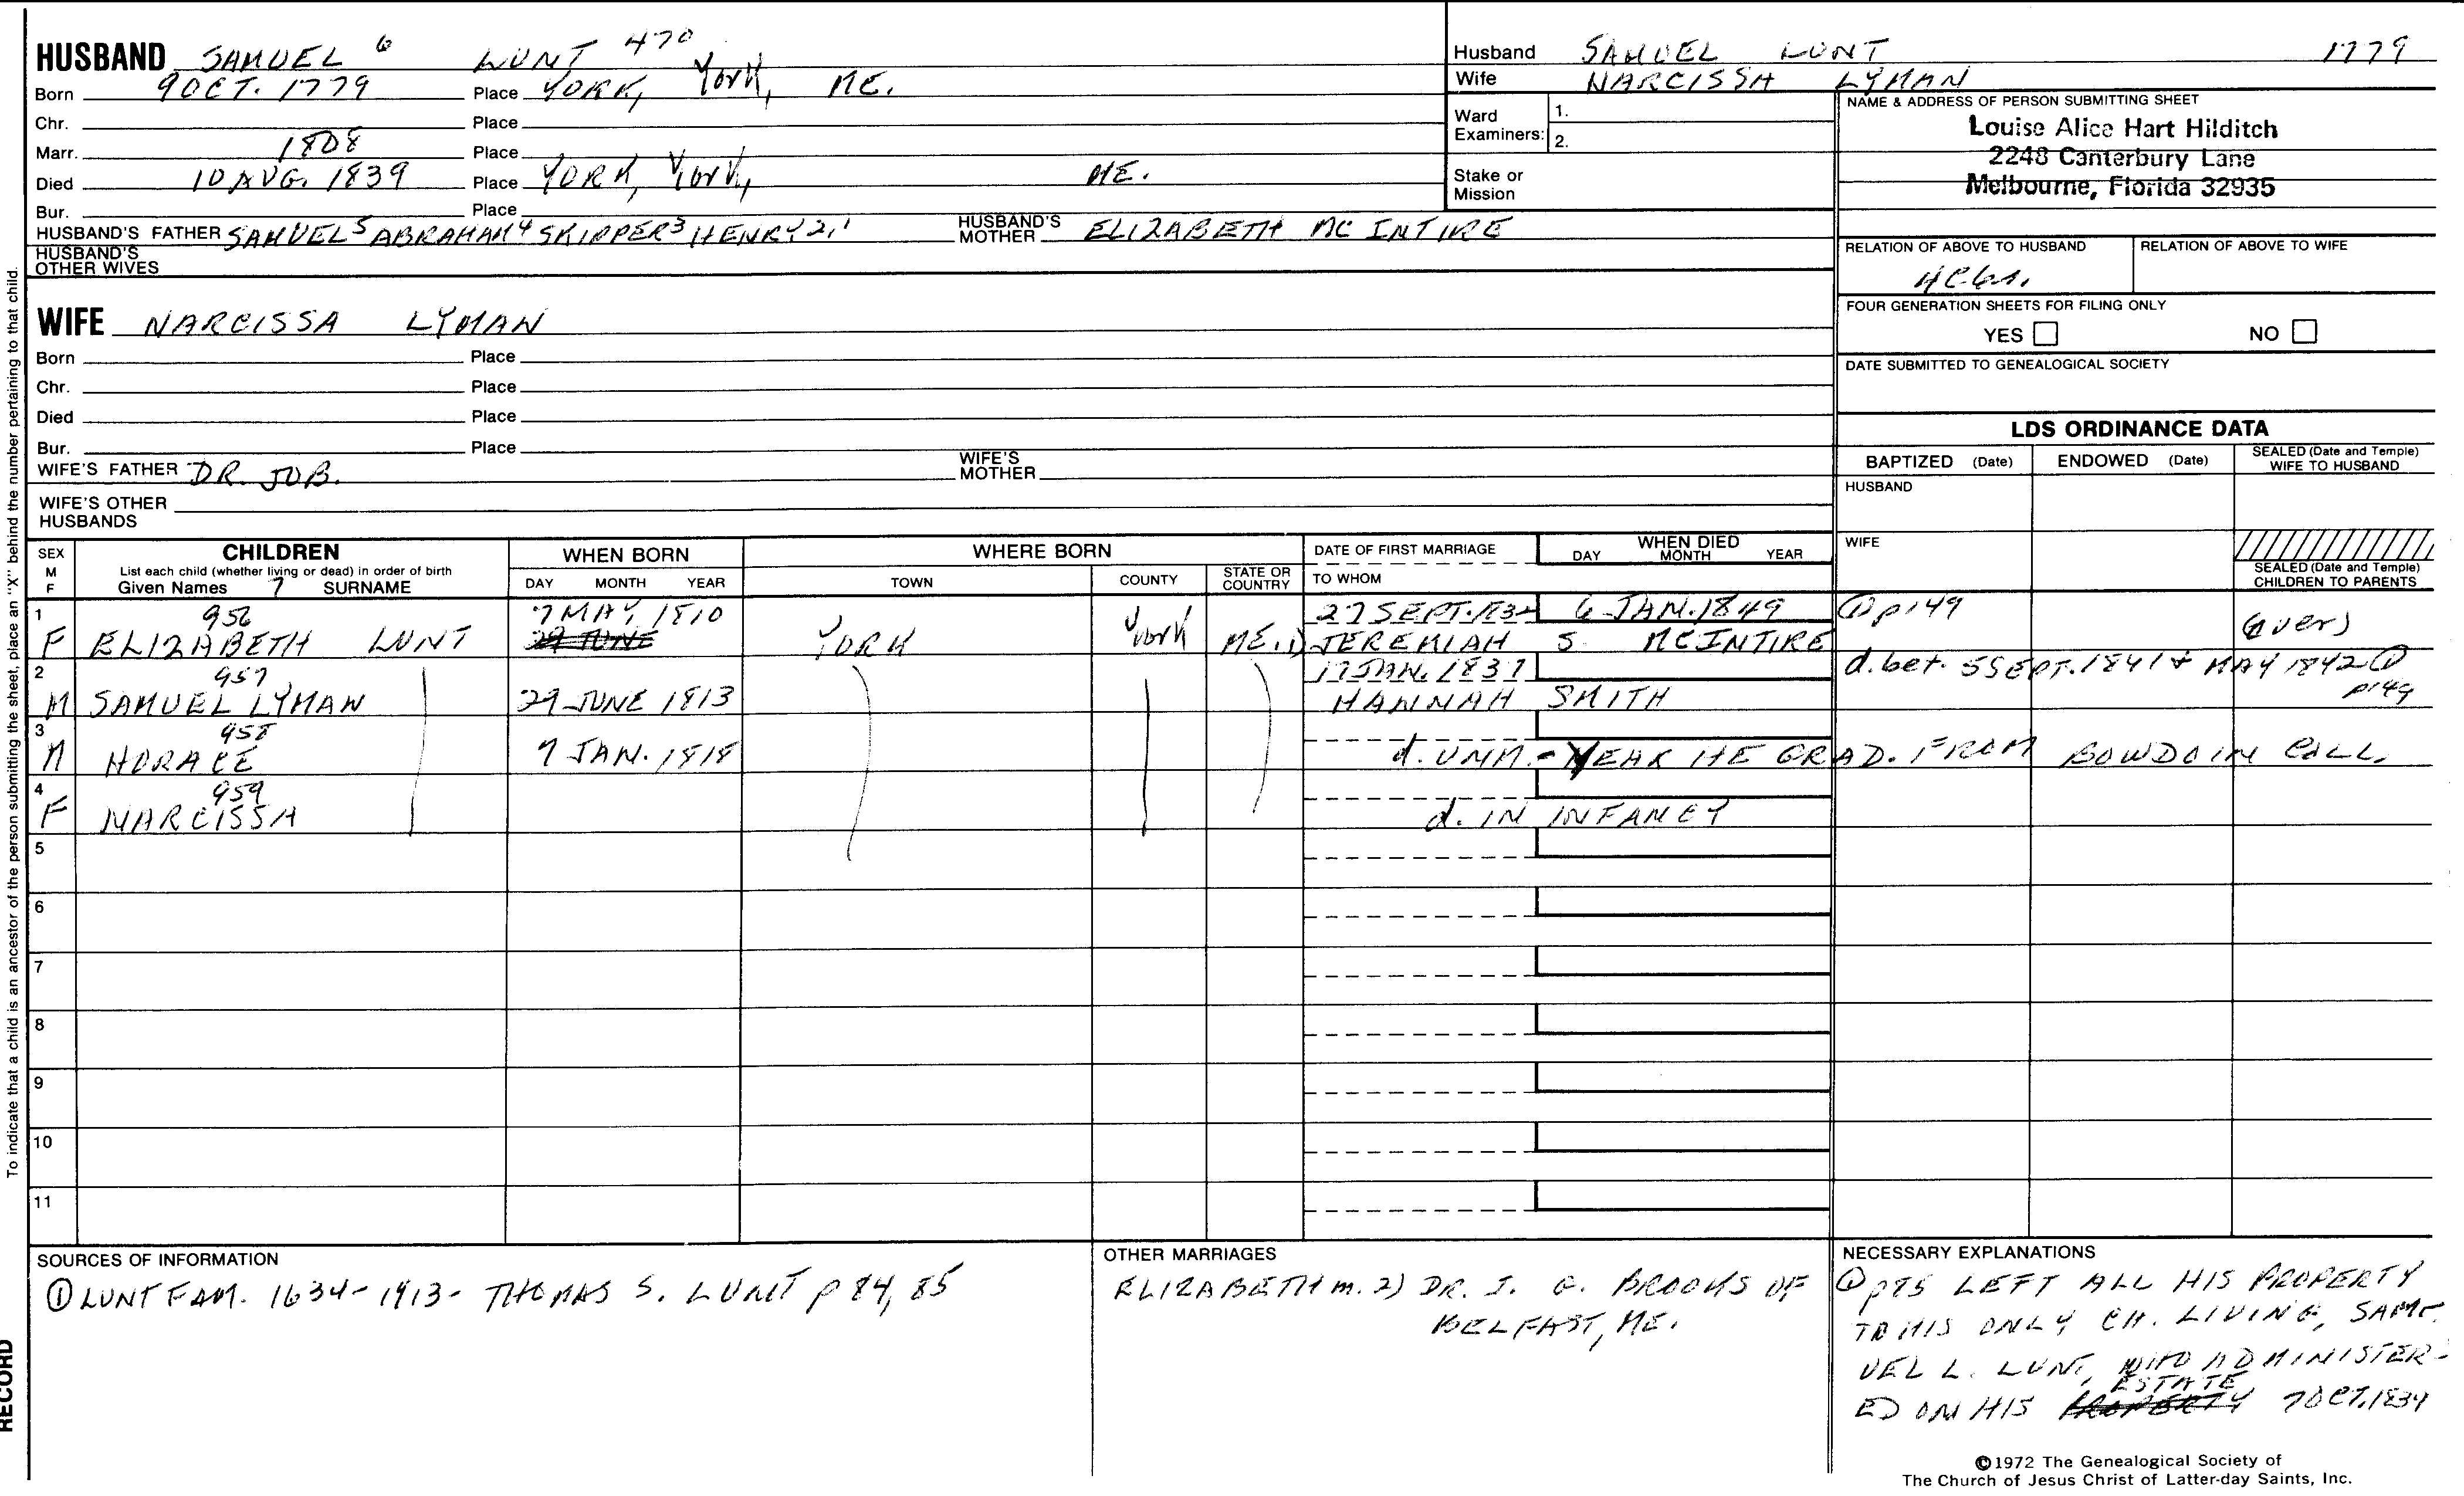 HUSBAND SAMUEL 6 LUNT 470
Born 9 OCT. 1779 Place YORK, York, ME.
Chr. Place
Marr. 1808 Place
Died 10 AUG. 1839 Place YORK, York, ME.
Bur. Place
HUSBAND'S FATHER SAMUEL5 ABRAHAM4 SKIPPER3 HENRY2,1 HUSBAND'S MOTHER ELIZABETH MC INTIRE
HUSBAND'S OTHER WIVES
Husband SAMUEL LUNT 1779
Wife NARCISSA LYMAN
Ward Examiners: 1.
2.
Stake or Mission
NAME & ADDRESS OF PERSON SUBMITTING SHEET
Louise Alice Hart Hilditch
2248 Canterbury Lane
Melbourne, Florida 32935
RELATION OF ABOVE TO HUSBAND RELATION OF ABOVE TO WIFE
FOUR GENERATION SHEETS FOR FILING ONLY
YES NO
DATE SUBMITTED TO GENEALOGICAL SOCIETY
WIFE NARCISSA LYMAN
Born Place
Chr. Place
Died Place
Bur. Place
WIFE'S FATHER DR. JOB. WIFE'S MOTHER
WIFE'S OTHER HUSBANDS
LDS ORDINANCE DATA
BAPTIZED (Date) ENDOWED (Date) SEALED (Date and Temple) WIFE TO HUSBAND
HUSBAND
WIFE
SEALED (Date and Temple) CHILDREN TO PARENTS
SEX M F CHILDREN WHEN BORN WHERE BORN DATE OF FIRST MARRIAGE WHEN DIED
List each child (whether living or dead) in order of birth
Given Names 7 SURNAME DAY MONTH YEAR TOWN COUNTY STATE OR COUNTRY TO WHOM DAY MONTH YEAR
1 956 7 MAY, 1810 27 SEPT. 6 JAN. 1849 ① p149
F ELIZABETH LUNT 29 JUNE YORK York ME. 1) JEREMIAH S. MCINTIRE (over)
2 957 17 JAN. 1837 d. bet. 5 SEPT. 1841 + MAY 1842 ①
M SAMUEL LYMAN 29 JUNE 1813 HANNAH SMITH p149
3 958
M HORACE 7 JAN. 1818 d. UNM. - YEAR HE GRAD. FROM BOWDOIN COLL.
4 959
F NARCISSA d. IN INFANCY
5
6
7
8
9
10
11
SOURCES OF INFORMATION
① LUNT FAM. 1634-1913- THOMAS S. LUNT p 84, 85
OTHER MARRIAGES
ELIZABETH m. 2) DR. J. G. BROOKS OF
BELFAST, ME.
NECESSARY EXPLANATIONS
① p85 LEFT ALL HIS PROPERTY
TO HIS ONLY CH. LIVING, SAM-
UEL L. LUNT, WHO ADMINISTER-
ESTATE
ED ON HIS PROPERTY 7 OCT. 1839
©1972 The Genealogical Society of
The Church of Jesus Christ of Latter-day Saints, Inc.
To indicate that a child is an ancestor of the person submitting the sheet, place an "X" behind the number pertaining to that child.
RECORD